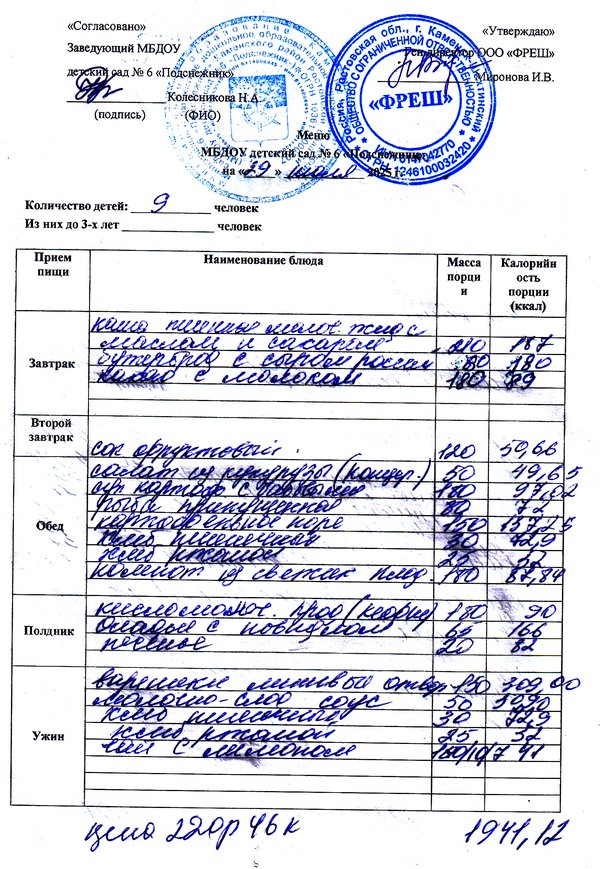 «Согласовано» «Утверждаю»
Заведующий МБДОУ Ген.директор ООО «ФРЕШ»
детский сад № 6 «Подснежник»
Колесникова Н.А. Миронова И.В.
(подпись) (ФИО)
«ФРЕШ»
Меню
МБДОУ детский сад № 6 «Подснежник»
на «29» июля 2025 г.
Количество детей: 9 человек
Из них до 3-х лет человек
Прием пищи Наименование блюда Масса порции Калорийность порции (ккал)
Завтрак
каша пшенная молоч. жид с
маслом и сахаром 187
бутерброд с сыром россий 180
какао с молоком 180 79
Второй завтрак
сок фруктовый 120 50,66
Обед
салат из кукурузы (консер.) 50 49,65
суп картоф с 180
рыба 72
картофельное пюре 150
хлеб пшеничный 30 72,9
хлеб ржаной 25 52
компот из свежих плод. 180 87,84
Полдник
кисломолоч. прод (кефир) 180 90
оладьи с повидлом 65 166
печенье 20 82
Ужин
вареники ленивые отвар 150 309,00
молочно-слад соус 50
хлеб пшеничный 30 72,9
хлеб ржаной 25 52
чай с лимоном 180/10/7 41
цена 220р 46к 1941,12